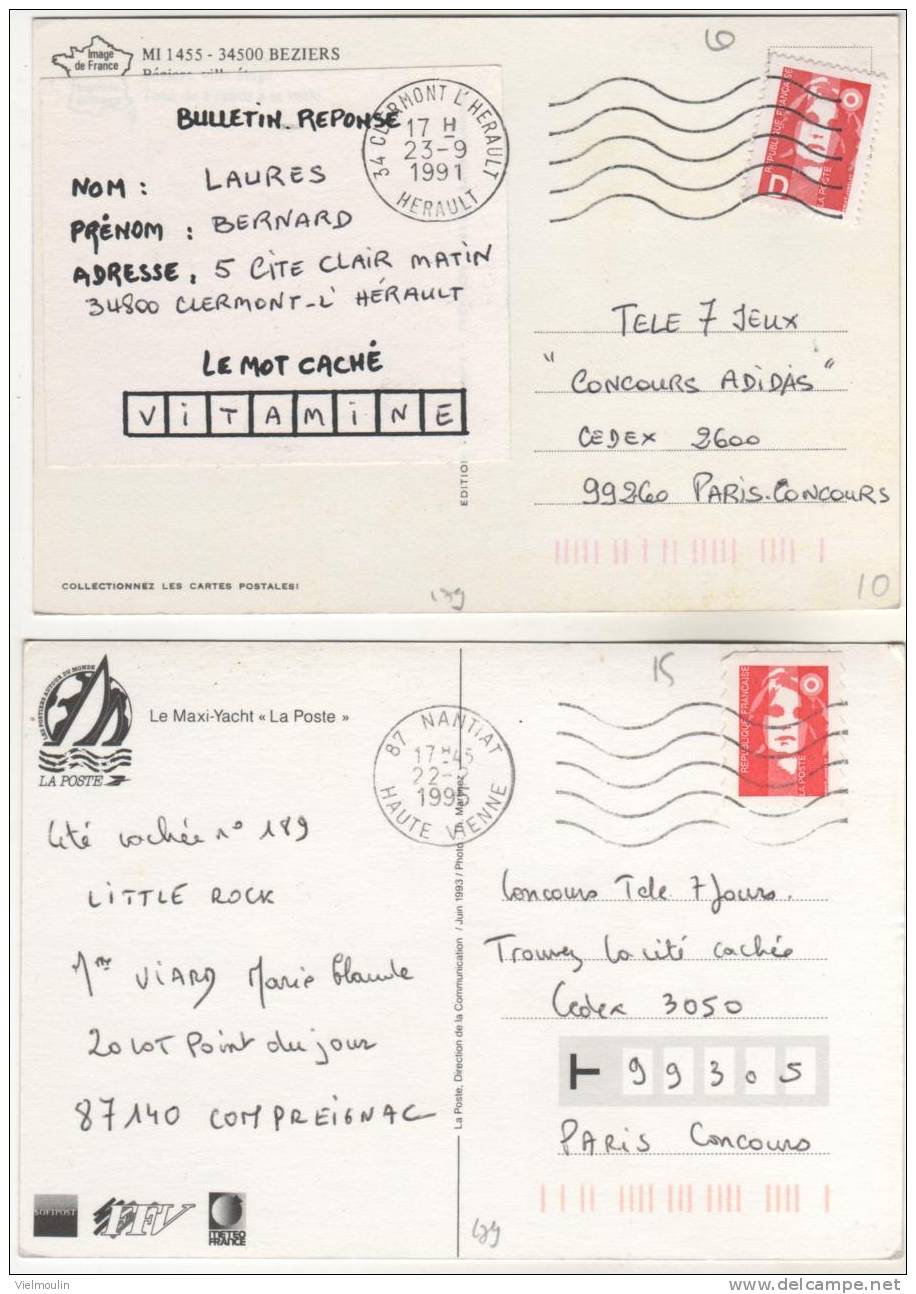 Image
de France
MI 1455 - 34500 BEZIERS
BULLETIN REPONSE
NOM : LAURES
PRÉNOM : BERNARD
ADRESSE, 5 CITE CLAIR MATIN
34800 CLERMONT-L' HÉRAULT
LE MOT CACHÉ
ViTAMiNE
34 CLERMONT L'HERAULT
17 H
23-9
1991
HERAULT
6
REPUBLIQUE FRANÇAISE
LA POSTE
D
TELE 7 JEUX
"CONCOURS ADIDAS"
CEDEX 2600
99260 PARIS-CONCOURS
EDITION
COLLECTIONNEZ LES CARTES POSTALES!
10
LES POSTIERS AUTOUR DU MONDE
LA POSTE
Le Maxi-Yacht « La Poste »
87 NANTIAT
17 H 45
22-
1995
HAUTE VIENNE
15
REPUBLIQUE FRANÇAISE
LA POSTE
Cité cachée n° 189
LITTLE ROCK
Mme VIARD Marie Claude
20 LOT Point du jour
87140 COMPREIGNAC
La Poste, Direction de la Communication / Juin 1993 / Photo Th. Martinez
Concours Tele 7 Jours.
Trouvez la cité cachée
Cedex 3050
T 99305
PARIS Concours
SOFIPOST
FFV
METEO
FRANCE
Vielmoulin
delcampe.net